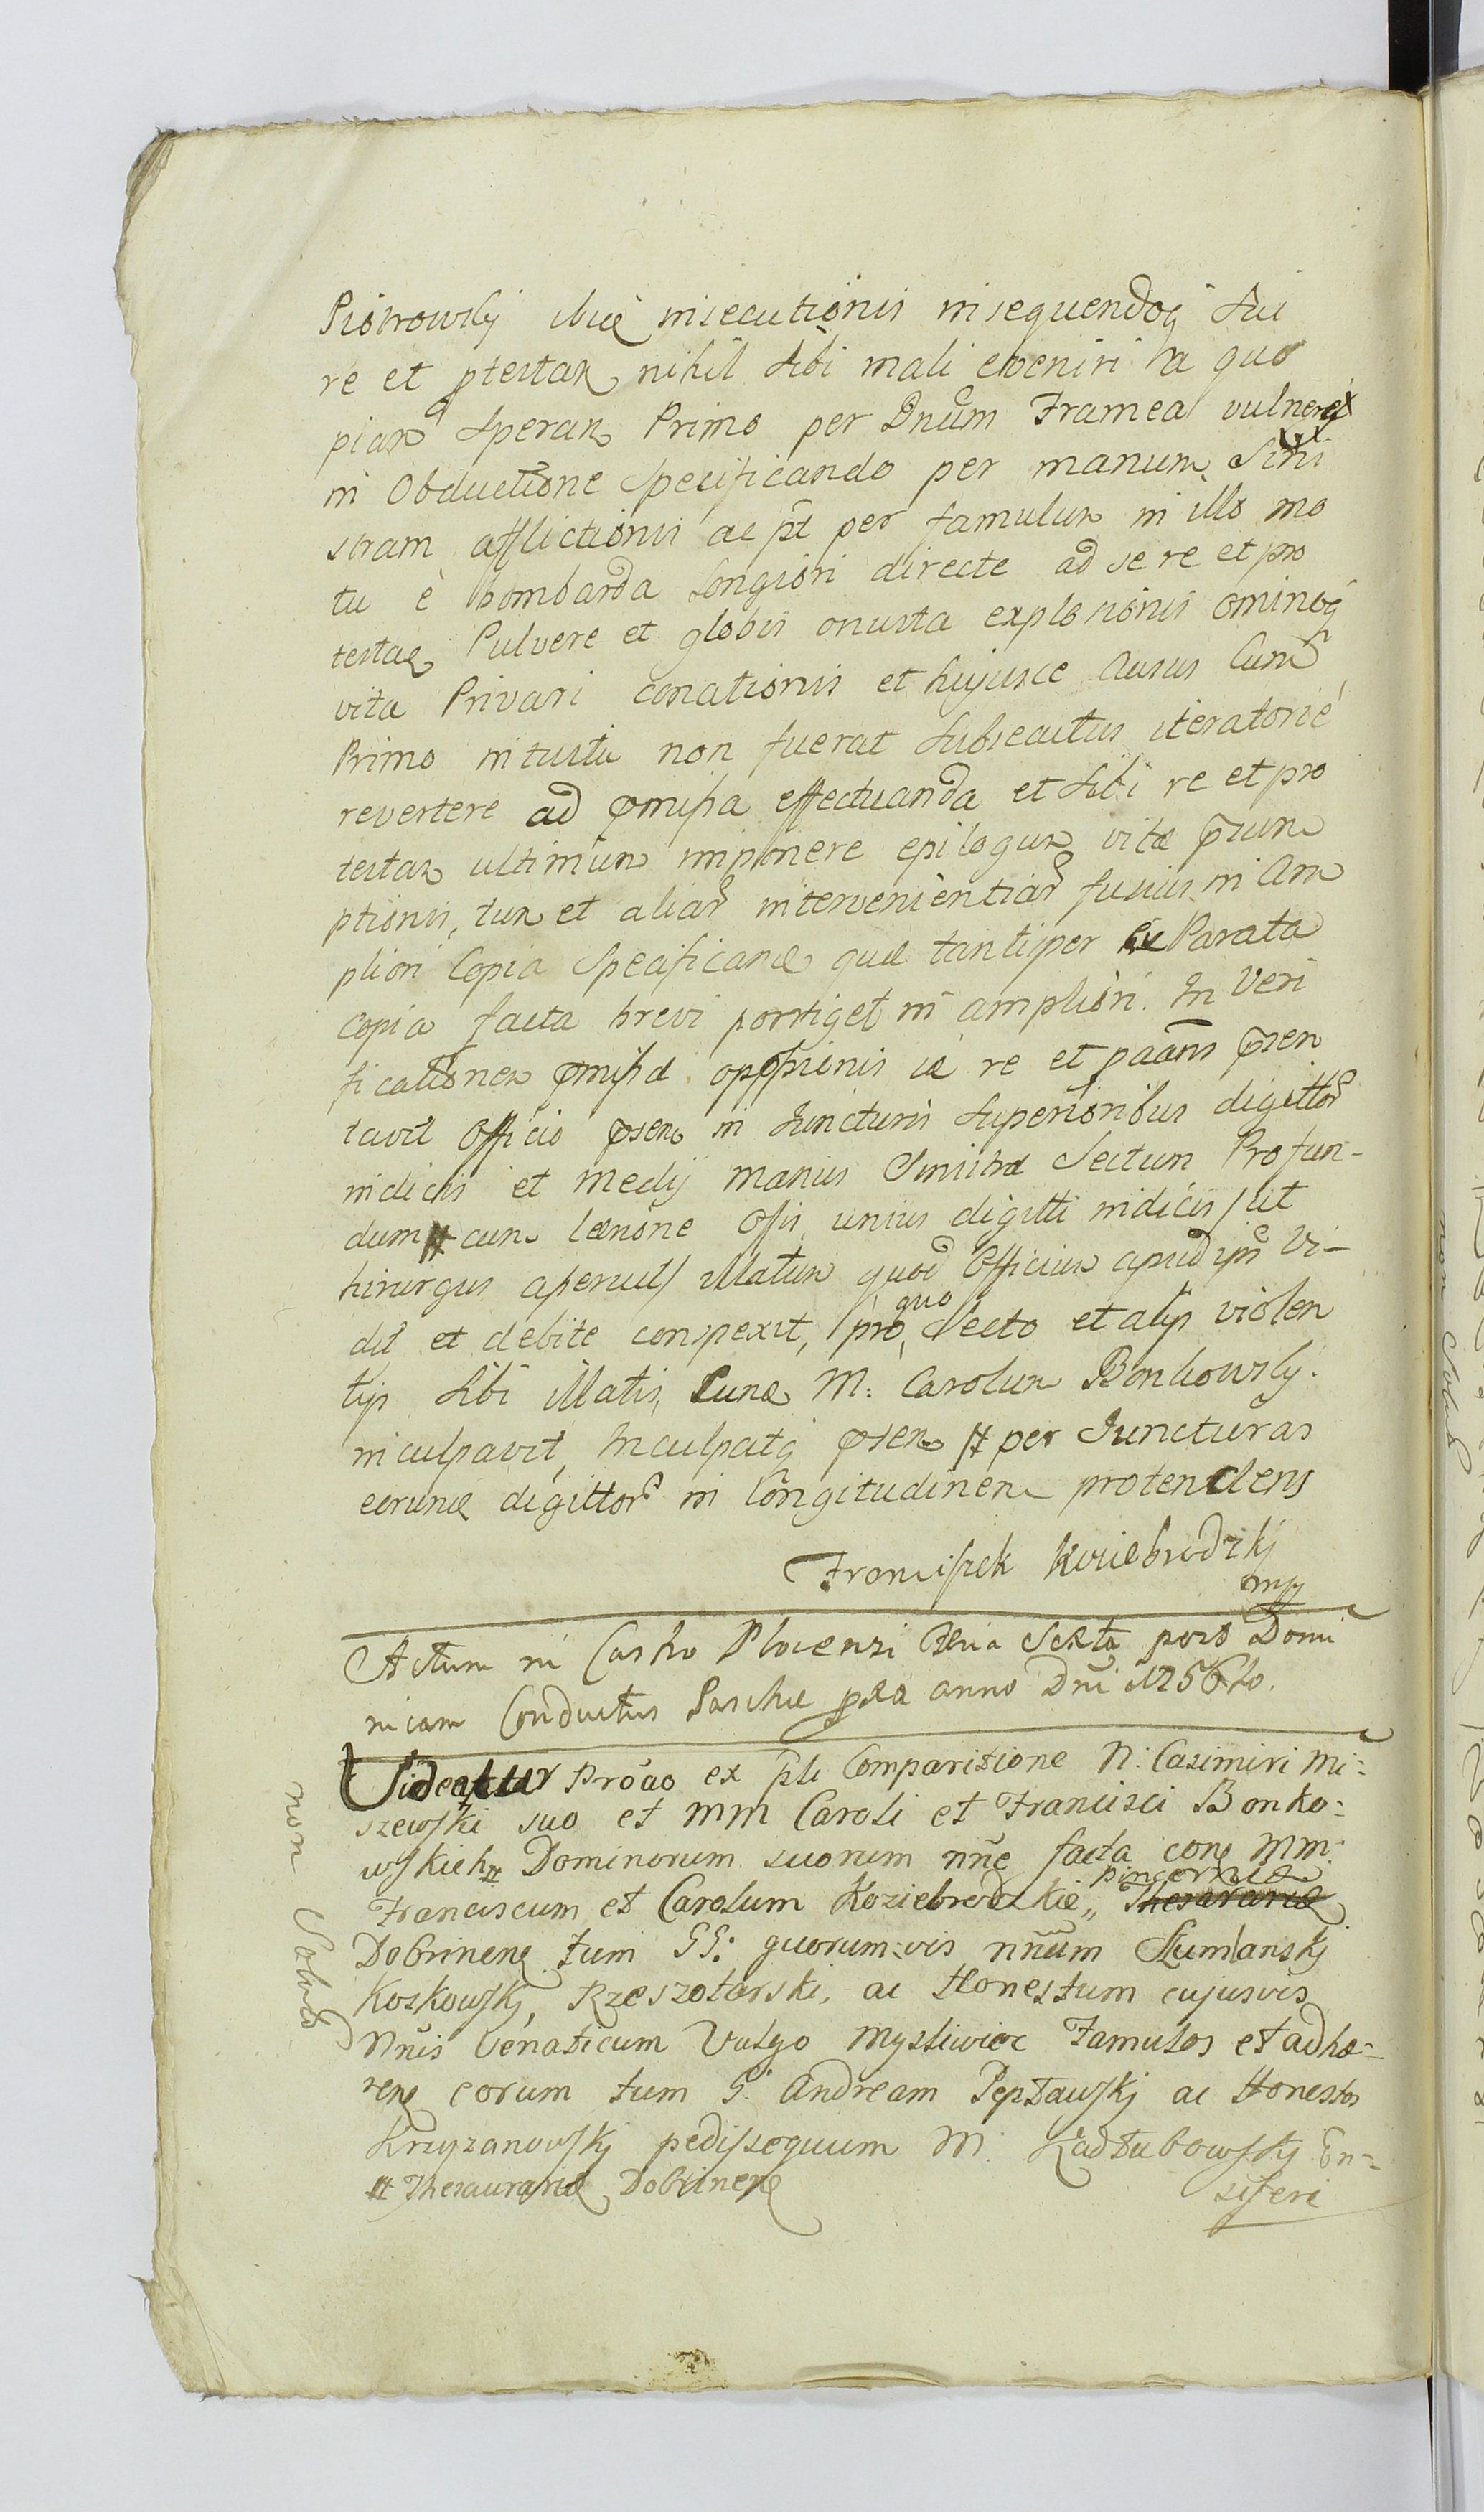 Piotrowskj ibiq insecutionis insequendoq Sui
re et ptestan nihil sibi mali eveniri a quo
piam speran Primo per Dnum Framea vulneris
in Obductione specificando per manum Sini
stram afflictionis ac pt per famulum in illo mo
tu è bombarda longiori directe ad se re et pro
testan Pulvere et globis onusta explosionis ominoq
vita Privari conationis et hujusce Ausus Cum
Primo intuitu non fuerat subsecutus iteratorie
revertere ad pmissa effectuanda et sibi re et pro
testan ultimum imponere epilogum vitæ præsum
ptionis, tum et aliar intervenientiar fusius in Am
pliori Copia Specificand quæ tantiper ex Parata
copia facta brevi porriget in ampliori. In Veri
ficationem pmissæ oppressionis id re et paans præsen
tavit Officio præsen in Juncturis superioribus digittor
indicis et medij manus Sinistræ Sectum Profun-
dum # cum læsione Ossis unius digitti indicis / ut
hirurgus aperuit / illatum quod Officium apud ipm vi-
dit et debite conspexit, pro quo Secto et alijs violen
tijs sibi illatis, eund M: Carolum Bonkowskj.
inculpavit, Inculpatq præsen # per Juncturas
eorund digittor in longitudinem protendens
Franciszek Koziebrodzkj
mp
Actum in Castro Plocensi feria Sexta post Domi
nicam Conductus Paschæ pxa anno Dni 1756to.
Videatur Proao ex pli Comparitione N: Casimiri Mi=
szewski suo et MM Caroli et Francisci Bonko=
wskich # Dominorum suorum nne facta con MM:
Franciscum et Carolum Koziebrodzkie,, Thesaurariæ pincernidæ
Dobrinen tum GG: quorum:vis nnum Szumlanskj
Koskowskj, Rzeszotarski, ac Honestum cujusvis
Nnis Venaticum Vulgo Mysliwiec Famulos et adhæ=
ren eorum tum G: Andream Peptawskj ac Honestos
Krzyzanowskj pedissequum M: Kadłubowskj En=
siferi
# Thesaurarid Dobrinen
non Solvit